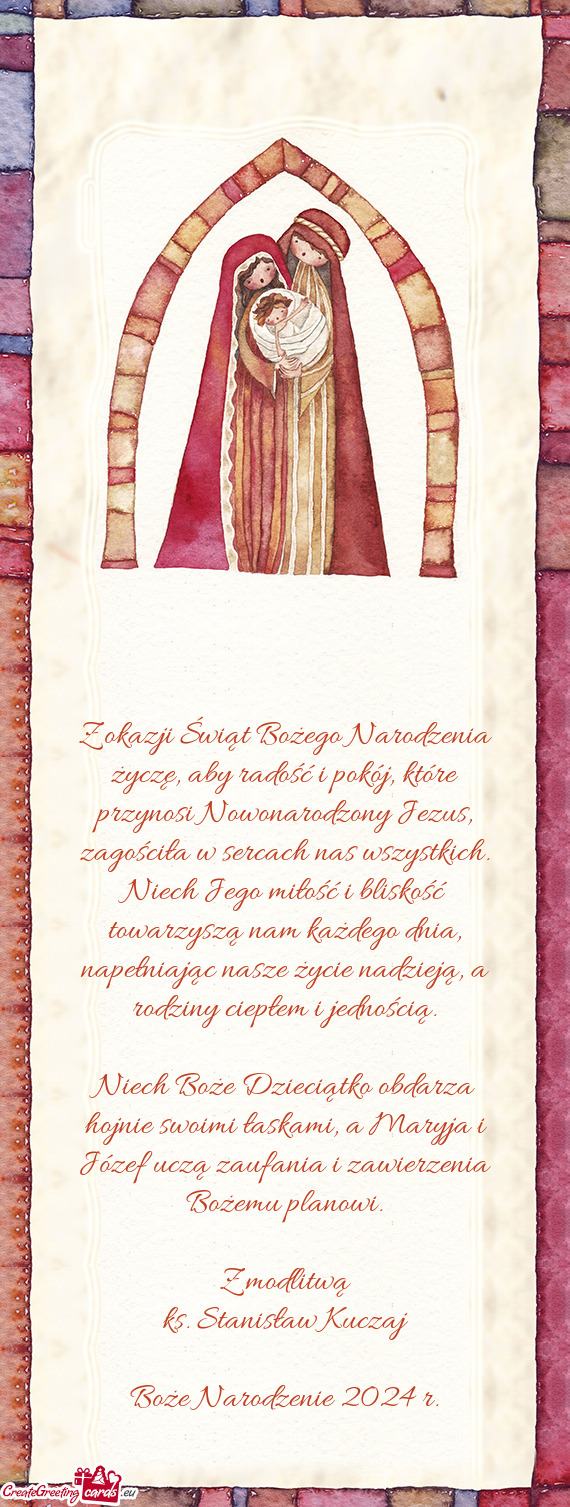 Z okazji Świąt Bożego Narodzenia
życzę, aby radość i pokój, które
przynosi Nowonarodzony Jezus,
zagościła w sercach nas wszystkich.
Niech Jego miłość i bliskość
towarzyszą nam każdego dnia,
napełniając nasze życie nadzieją, a
rodziny ciepłem i jednością.
Niech Boże Dzieciątko obdarza
hojnie swoimi łaskami, a Maryja i
Józef uczą zaufania i zawierzenia
Bożemu planowi.
Z modlitwą
ks. Stanisław Kuczaj
Boże Narodzenie 2024 r.
CreateGreetingcards.eu